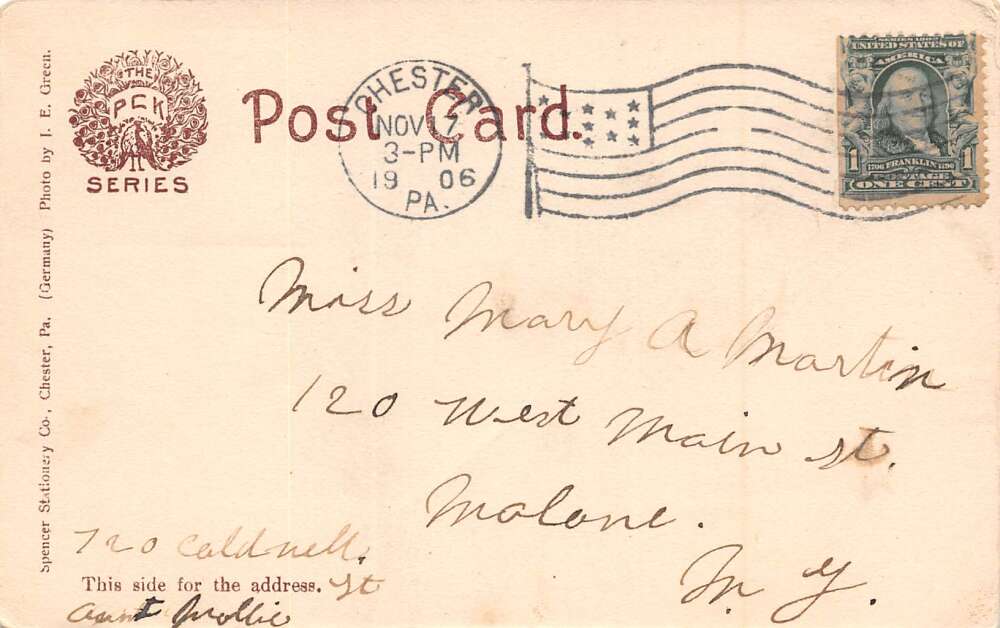 THE
PCK
SERIES
Post Card.
CHESTER
NOV 7
3-PM
19 06
PA.
SERIES 1902
UNITED STATES OF
AMERICA
1 1706 FRANKLIN 1790 1
POSTAGE
ONE CENT
Miss Mary A Martin
120 West Main st.
Malone.
N. Y.
720 Caldwell.
This side for the address. St
Aunt Mollie
Spencer Stationery Co., Chester, Pa. (Germany) Photo by J. E. Green.